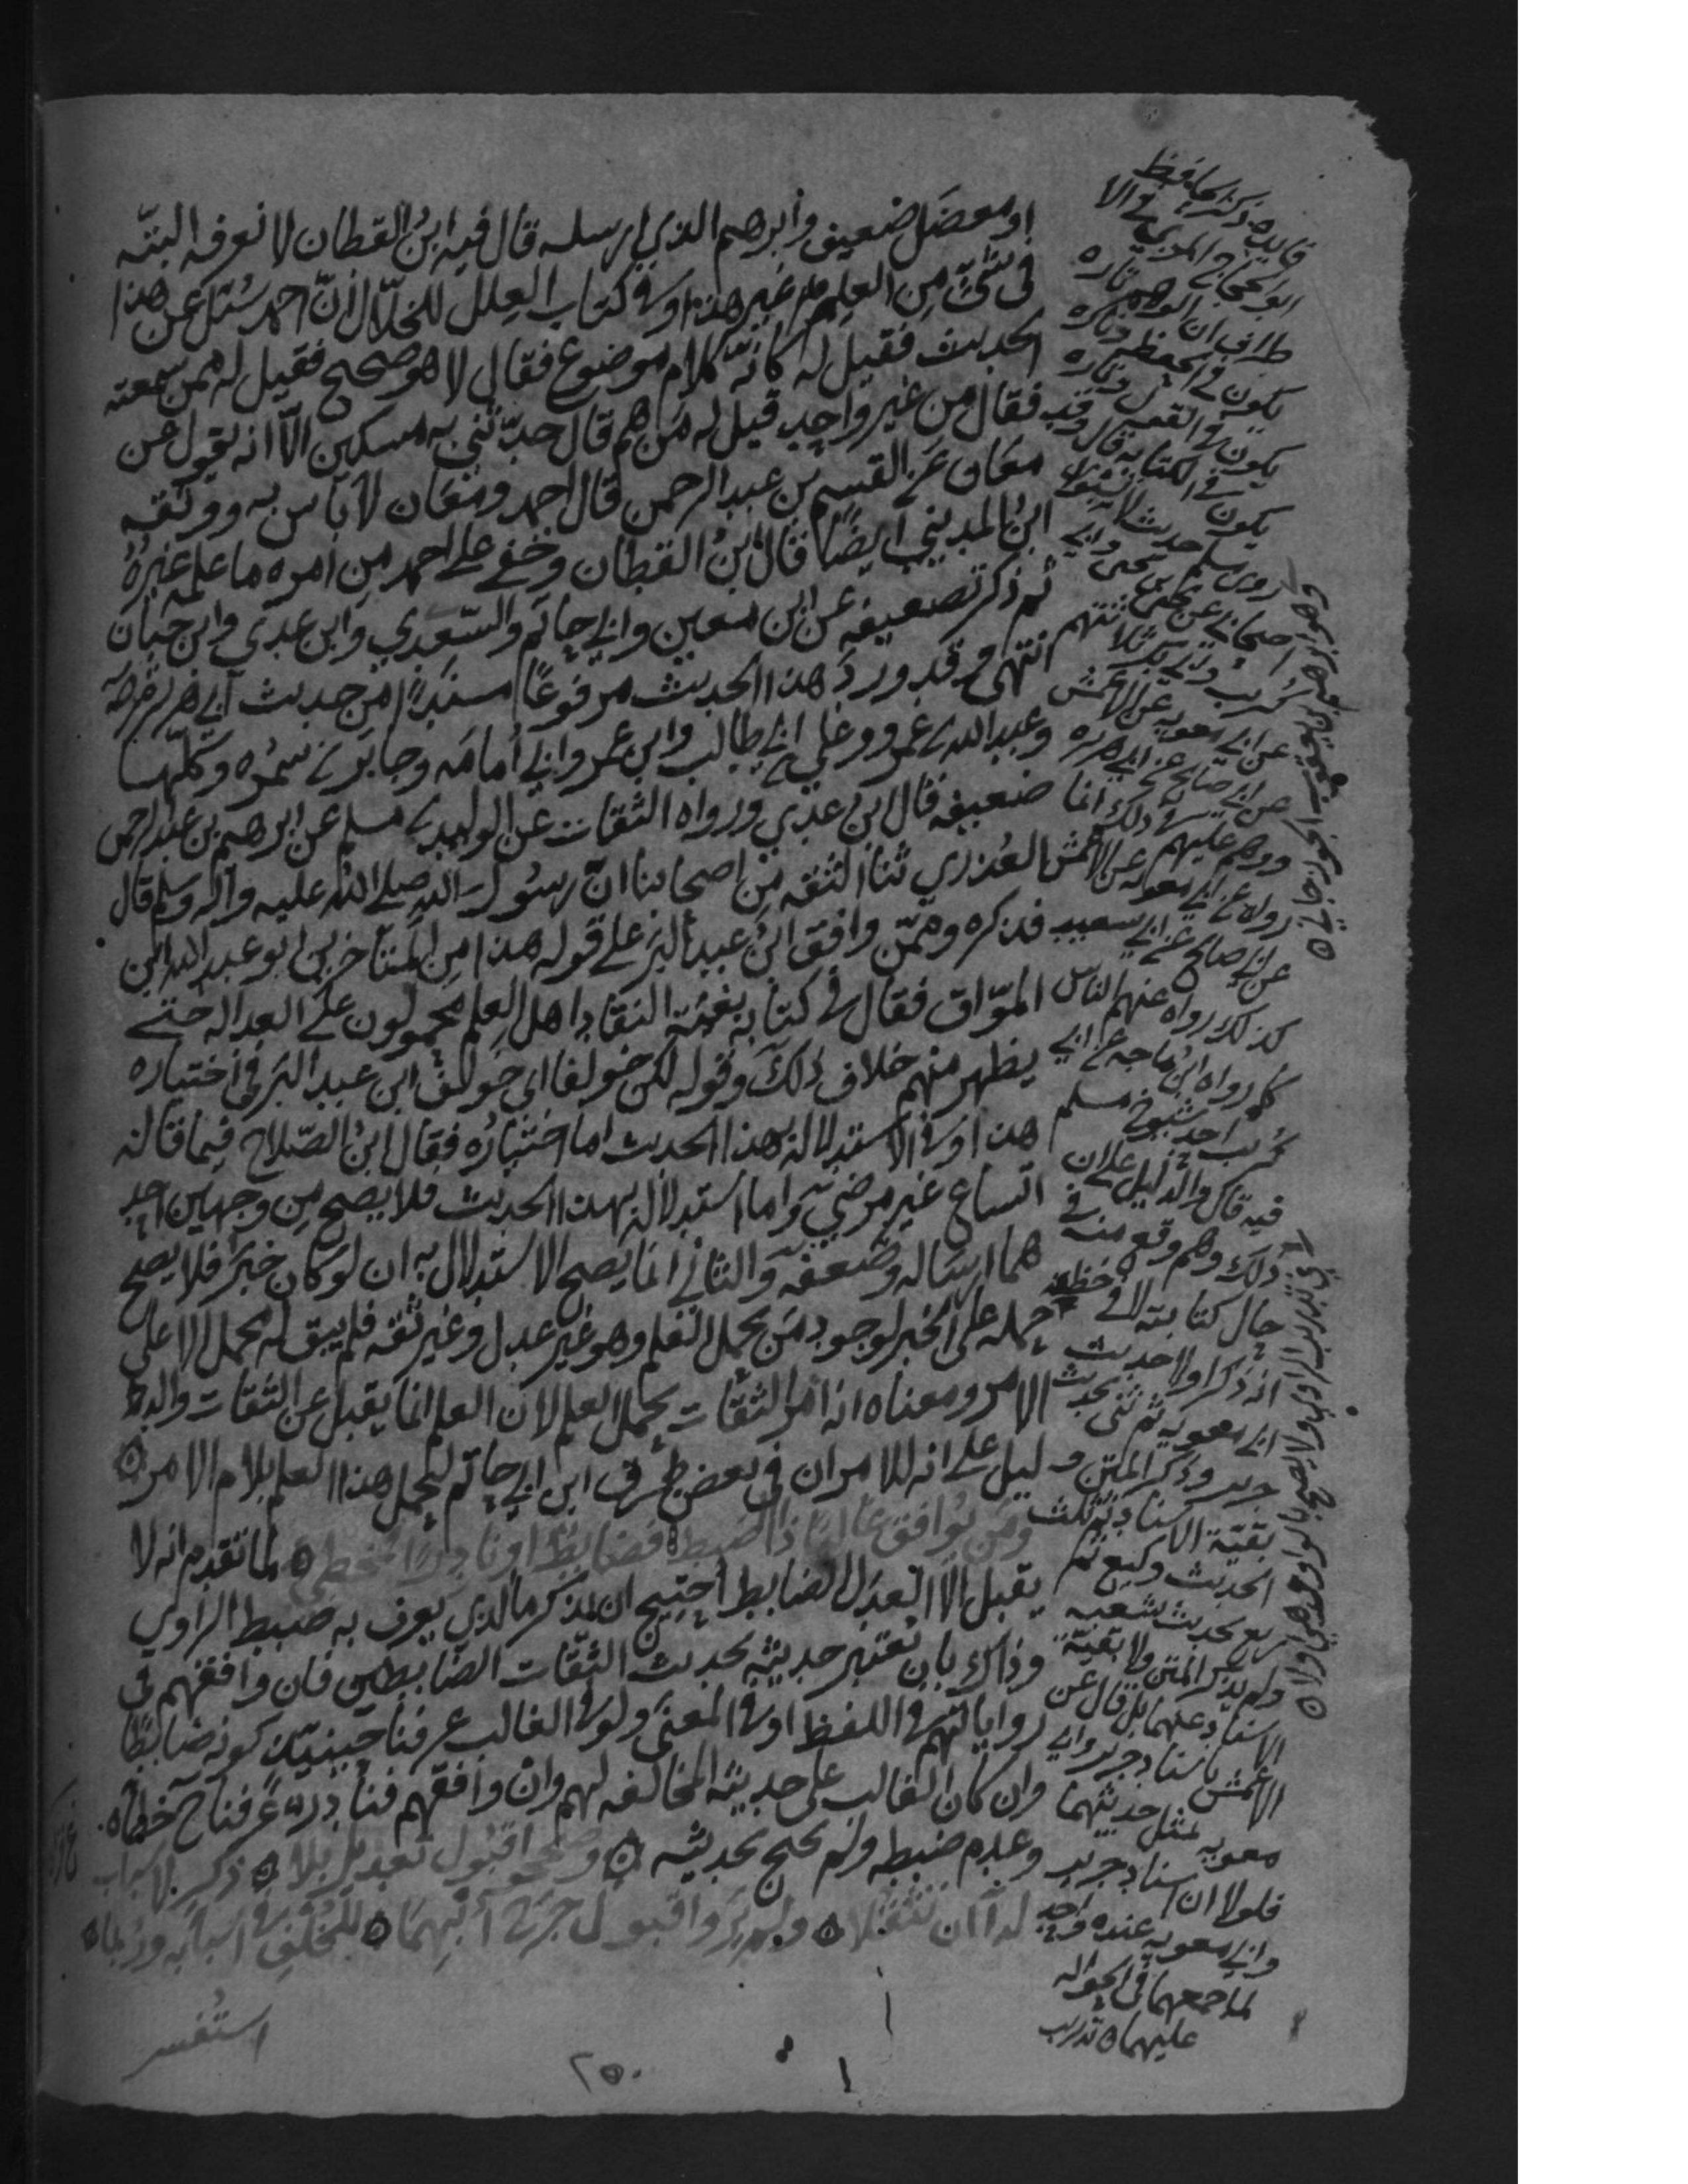 او معضل ضعيف وابرهيم الذي ارسله قال فيه ابن القطان لا نعرفه البتّه
في شيء من العلم غير هذا وفي كتاب العلل للخلّال انّ احمد سُئل عن هذا
الحديث فقيل له كانّه كلام موضوع فقال لا هو صحيح فقيل له ممن سمعته
فقال من غير واحد قيل له مَن هم قال حدّثني به مسكين الّا انه يقول عن
معان عن القسم بن عبد الرحمن قال احمد ومعان لا باس به ووثقه
ابن المديني ايضًا قال ابن القطان وخفي على احمد من امره ما علمه غيره
ثم ذكر تضعيفه عن ابن معين وابي حاتم والسّعدي وابن عدي وابن حبان
انتهى وقد ورد هذا الحديث مرفوعًا مسندًا من حديث ابي هريره
وعبد الله بن عمرو وعلي بن ابي طالب وابن عمر وابي أمامه وجابر بن سمره وكلّها
ضعيفه قال ابن عدي ورواه الثقات عن الوليد بن مسلم عن ابرهيم بن عبد الرحمن
العُذري ثنا الثقه من اصحابنا انّ رسُول الله صلى الله عليه وآله وسلم قال
فذكره وممّن وافق ابن عبد البرّ على قوله هذا من المتأخرين ابو عبد الله ابن
الموّاق فقال في كتابه بغية النقاد اهل العلم محمولون على العداله حتى
يظهر منهم خلاف ذلك وقوله لكن خولفا اي خولف ابن عبد البر في اختياره
هذا وفي الاستدلال له بهذا الحديث اما اختياره فقال ابن الصّلاح فيما قاله
اتساع غير مرضي واما استدلاله بهذا الحديث فلا يصح من وجهين احد
هما ارساله وضعفه والثاني انما يصح الاستدلال به ان لو كان خبرًا فلا يصح
حمله على الخبر لوجود مَن يحمل العلم وهو غير عدل وغير ثقه فلم يبق له محمل الا على
الامر ومعناه انه امر الثقات بحمل العلم لان العلم انما يقبل عن الثقات والد
ليل على انه للامر ان في بعض طرق ابن ابي حاتم ليحمل هذا العلم بلام الامر ۞
ومَن يُوافق غالبًا ذا الضبط فضابط اونادرا فمخطي ۞ لما تقدم انه لا
يقبل الّا العدل الضابط احتيج ان يذكر ما الذي يعرف به ضبط الراوي
وذلك بان نعتبر حديثه بحديث الثقات الضابطين فان وافقهم في
رواياتهم في اللفظ او في المعنى ولو في الغالب عرفنا حينئذ كونه ضابطًا
وان كان الغالب على حديثه المخالفه لهم وان وافقهم فنادرا عرفنا ح خطأه
وعدم ضبطه ولم يحتج بحديثه ۞ وصححوا قبول تعديل بلا ۞ ذكر لاسباب
له ان تثقلا ۞ ولم يروا قبول جرح أبهما ۞ للخلف في اسبابه وربما ۞
استفسر
٢٥٠
فايده ذكر الحافظ
ابو الحجاج المزي في الا
طراف ان الوهم تاره
يكون في الحفظ وتاره
يكون في القول وتاره
يكون في الكتابه قال وقد
روى مسلم حديث لا تسبوا
اصحابي عن يحيى بن يحيى وابي
كريب وابي بكر ثلاثتهم
عن ابي معويه عن الاعمش
عن ابي صالح عن ابي هريره
ووهم عليهم في ذلك انما
رووه عن ابي معويه عن الاعمش
عن ابي صالح عن ابي سعيد
كذلك رواه عنهم الناس
كما رواه ابن ماجه عن ابي
كريب احد شيوخ مسلم
فيه قال والدليل على ان
ذلك وهم وقع منه في
حال كتابته لا في حفظه
انه ذكر اولا حديث
ابي معويه ثم ثنى بحديث
جرير وذكر المتن و
بقيّة الاسناد ثم ثلث
الحديث وكيع ثم
ربع بحديث شعبه
ولم يذكر المتن ولا بقيّة
الاسناد عنهما بل قال عن
الاعمش باسناد جرير وابي
معويه بمثل حديثهما
فلولا ان اسناد جرير
وابي معويه عنده واحد
لما جمعهما في الحواله
عليهما ۞ تدريب